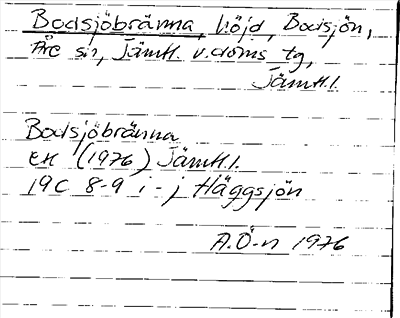 Bodsjöbränna, höjd, Bodsjön,
Åre sn, Jämtl. v. doms tg,
Jämtl.l.
Bodsjöbränna
EK (1976) Jämtl.l.
19C 8-9 i-j Häggsjön
A.Ö-n 1976